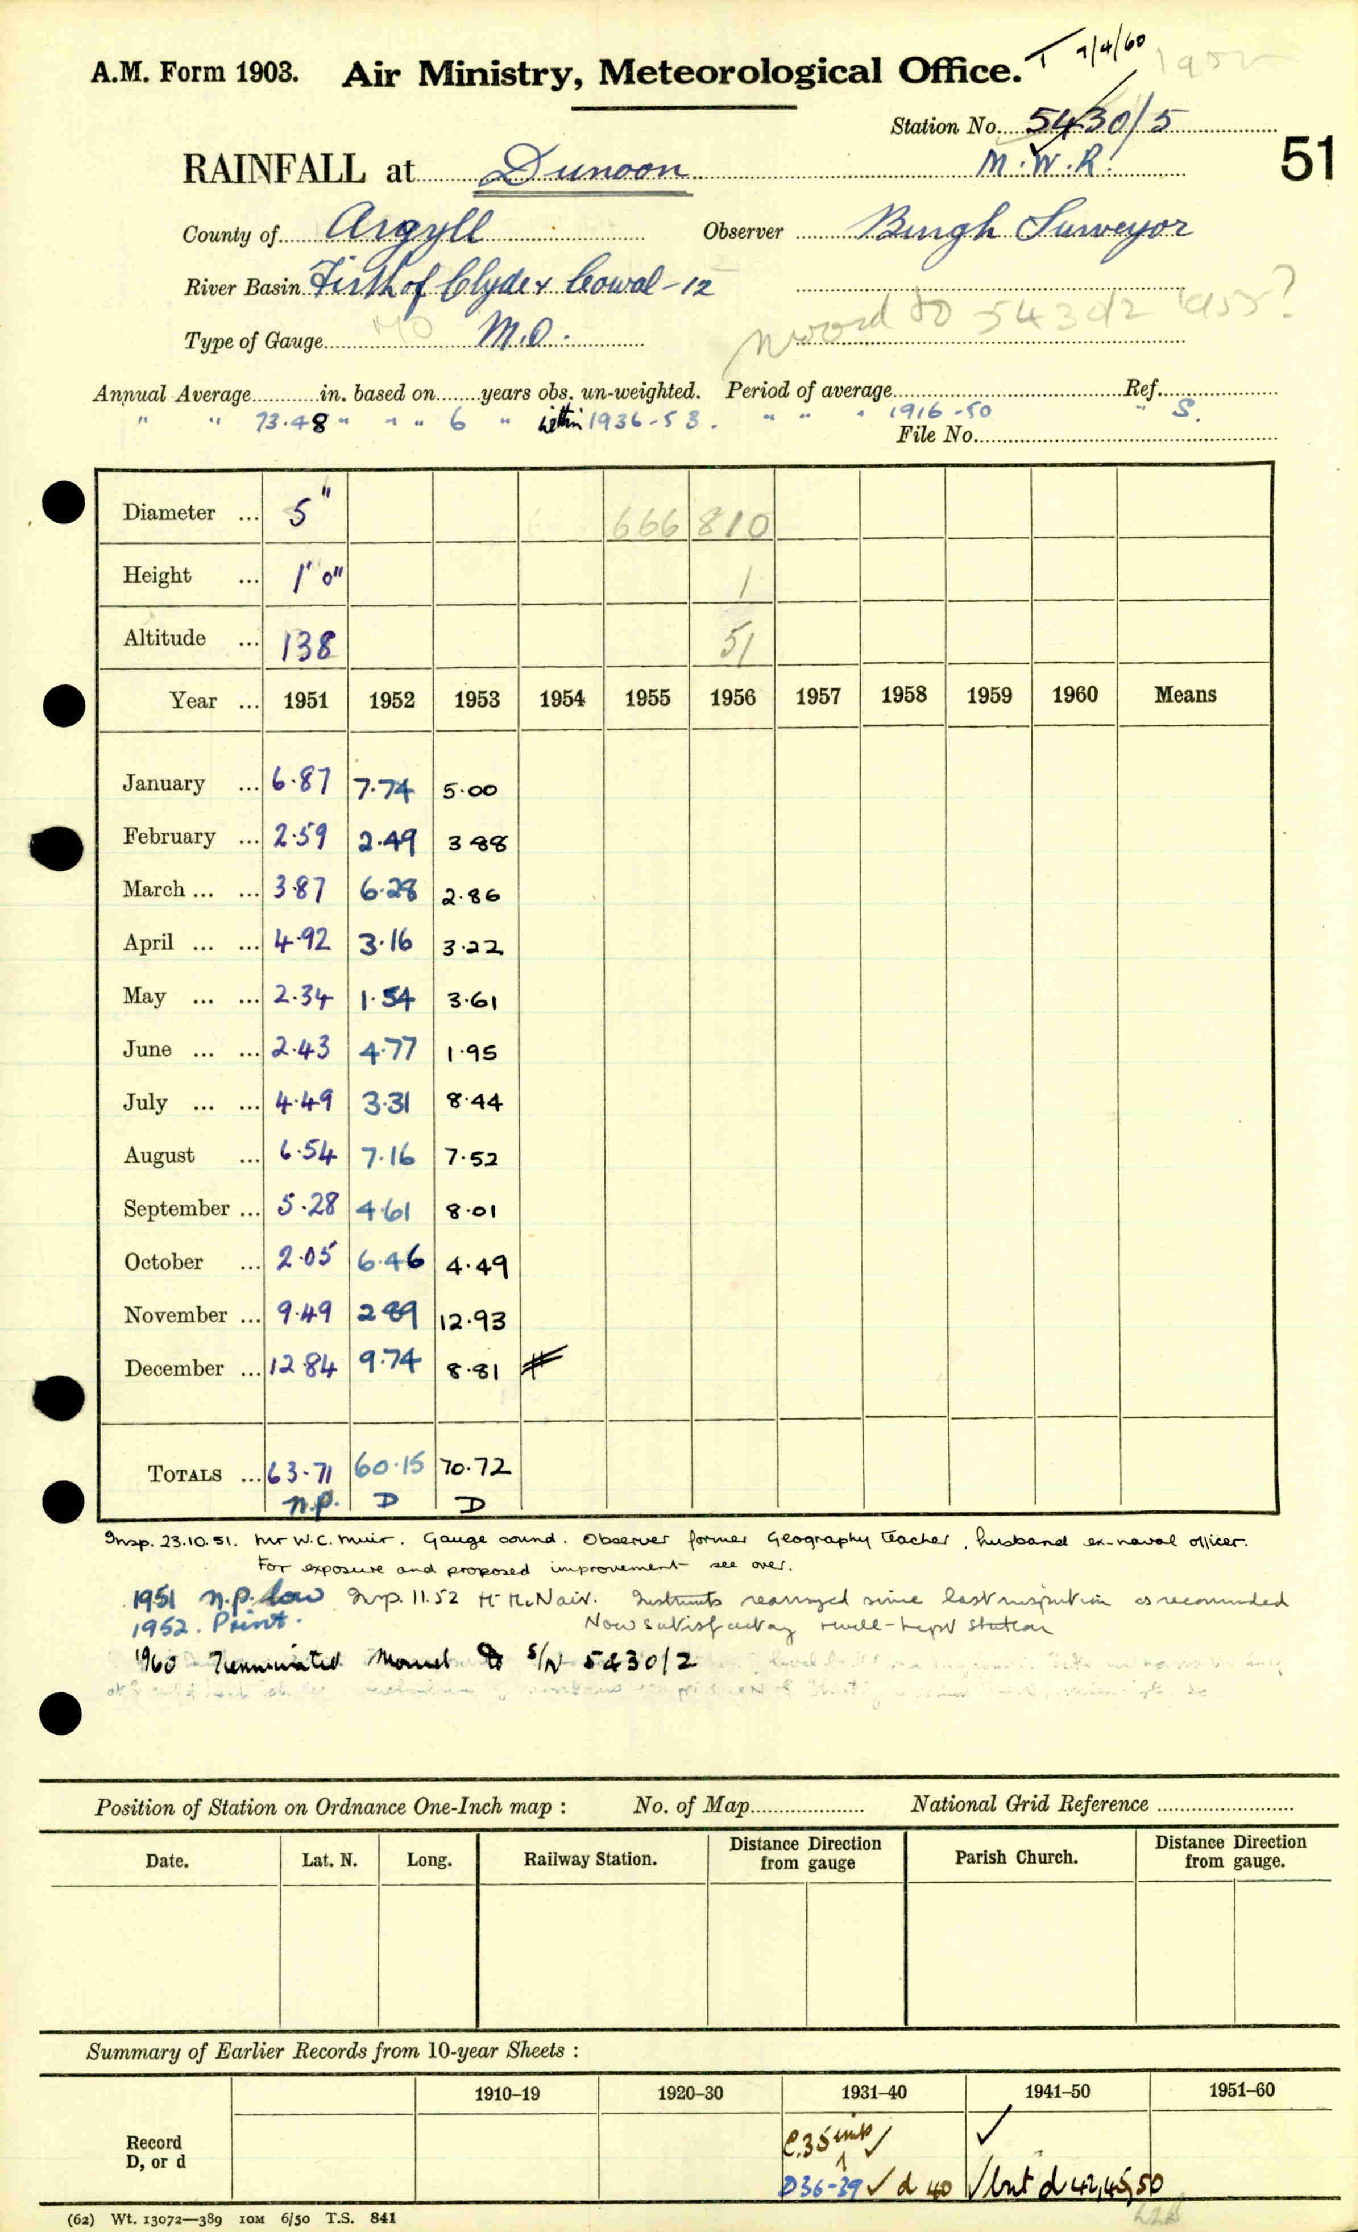 T 9/4/60 1952
A.M. Form 1903. Air Ministry, Meteorological Office.
Station No. 5430/5
RAINFALL at Dunoon M.W.R. 51
County of Argyll Observer Burgh Surveyor
River Basin Firth of Clyde & Cowal-12
moved to 5430/2 1955?
Type of Gauge M.O.
Annual Average in. based on years obs. un-weighted. Period of average Ref.
" " 73.48 " " " 6 " within 1936-53. " " " 1916-50 " S.
File No.
Diameter ... 5" 666 810
Height ... 1'0" 1
Altitude ... 138 51
Year ... 1951 1952 1953 1954 1955 1956 1957 1958 1959 1960 Means
January ... 6.87 7.74 5.00
February ... 2.59 2.49 3.88
March ... ... 3.87 6.28 2.86
April ... ... 4.92 3.16 3.22
May ... ... 2.34 1.54 3.61
June ... ... 2.43 4.77 1.95
July ... ... 4.49 3.31 8.44
August ... 6.54 7.16 7.52
September ... 5.28 4.61 8.01
October ... 2.05 6.46 4.49
November ... 9.49 2.89 12.93
December ... 12.84 9.74 8.81
TOTALS ... 63.71 60.15 70.72
n.p. D D
Insp. 23.10.51. Mr W.C. Muir. Gauge sound. Observer former Geography teacher, husband ex-naval officer.
For exposure and proposed improvement see over.
1951 n.p. low Insp. 11.52 H McNair. Instruments rearranged since last inspection as recommended
1952. Print. Now satisfactory & well-kept station
1960 Terminated Moved to S/N 5430/2
Position of Station on Ordnance One-Inch map : No. of Map National Grid Reference
Date. Lat. N. Long. Railway Station. Distance Direction from gauge Parish Church. Distance Direction from gauge.
Summary of Earlier Records from 10-year Sheets :
1910–19 1920–30 1931–40 1941–50 1951–60
Record D, or d
C.35 ✓ ✓
D36-39 ✓ d 40 ✓ but d 42,45,50
(62) Wt. 13072—389 10M 6/50 T.S. 841